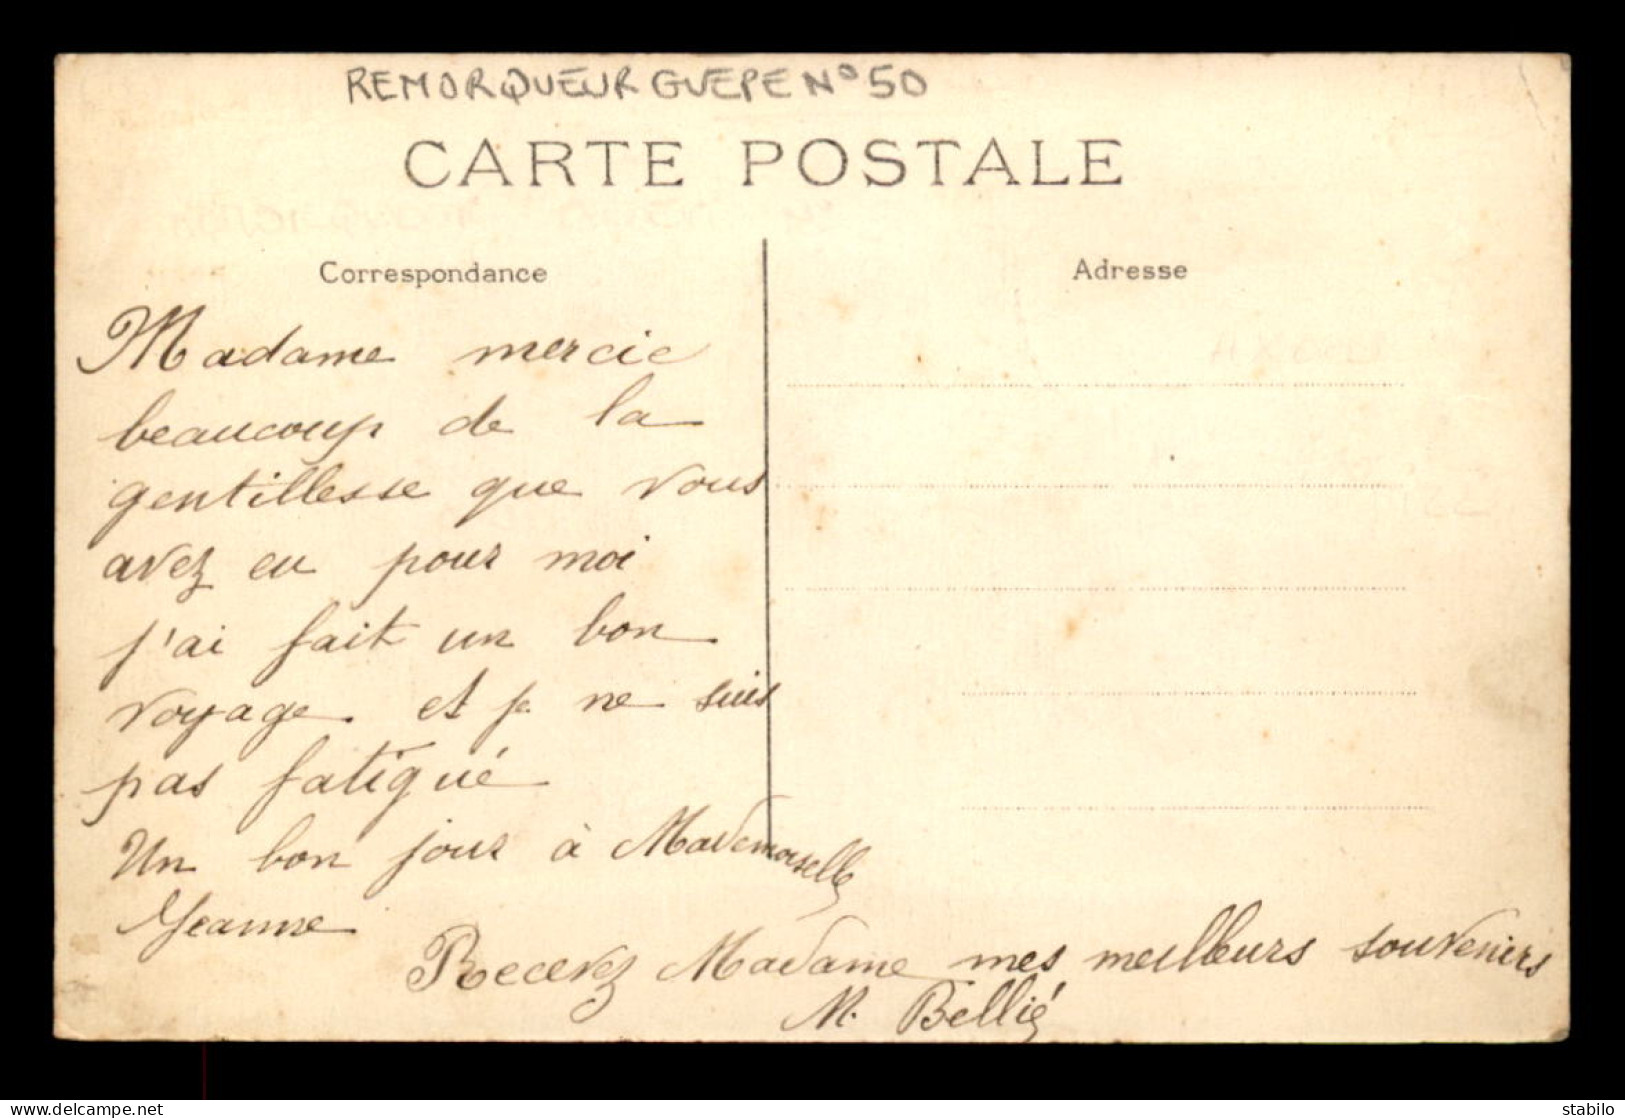 REMORQUEUR GUEPE N° 50
CARTE POSTALE
Correspondance
Adresse
Madame mercie
beaucoup de la
gentillesse que vous
avez eu pour moi
j'ai fait un bon
voyage. et je ne suis
pas fatigué
Un bon jour à Mademoiselle
Jeanne
Recevez Madame mes meilleurs souvenirs
M. Bellié
delcampe.net
stabilo